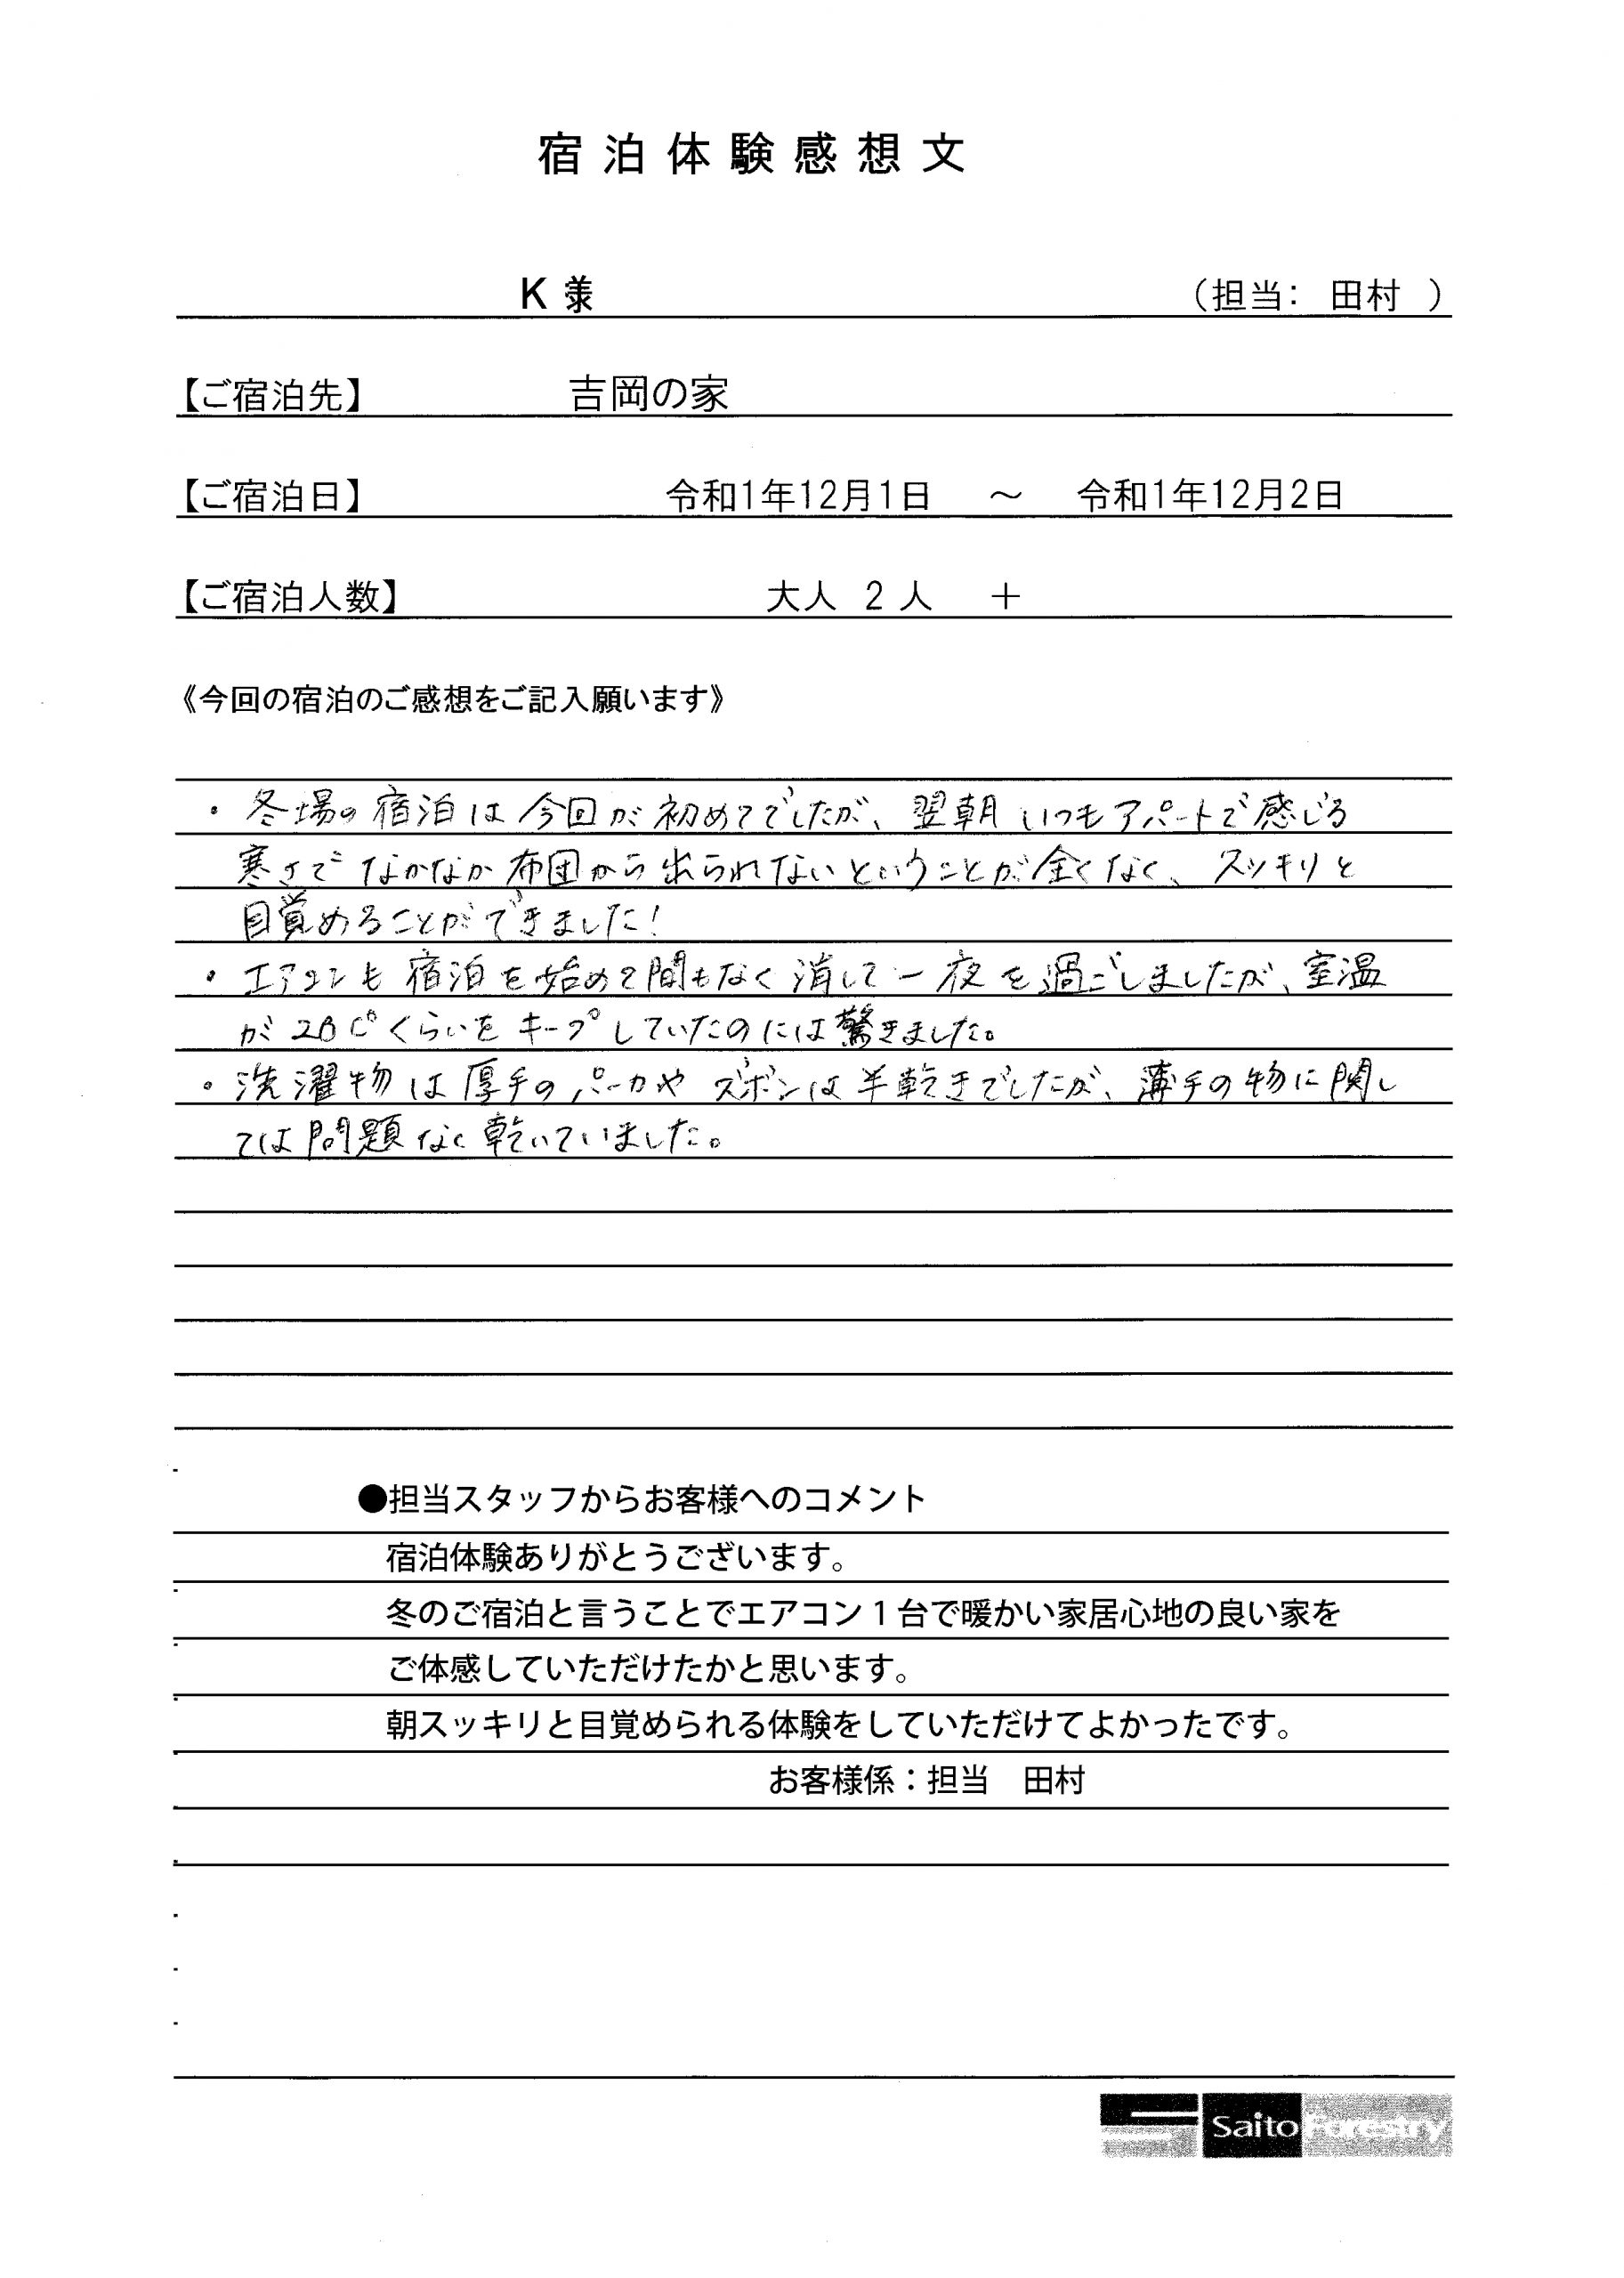 宿泊体験感想文
K 様
（担当： 田村 ）
【ご宿泊先】 吉岡の家
【ご宿泊日】 令和1年12月1日 ～ 令和1年12月2日
【ご宿泊人数】 大人 2 人 ＋
《今回の宿泊のご感想をご記入願います》
・冬場の宿泊は今回が初めてでしたが、翌朝いつもアパートで感じる
寒さでなかなか布団から出られないということが全くなく、スッキリと
目覚めることができました！
・エアコンも宿泊を始めて間もなく消して一夜を過ごしましたが、室温
が 20℃くらいをキープしていたのには驚きました。
・洗濯物は厚手のパーカやズボンは半乾きでしたが、薄手の物に関し
ては問題なく乾いていました。
●担当スタッフからお客様へのコメント
宿泊体験ありがとうございます。
冬のご宿泊と言うことでエアコン１台で暖かい家居心地の良い家を
ご体感していただけたかと思います。
朝スッキリと目覚められる体験をしていただけてよかったです。
お客様係：担当　田村
Saito Forestry